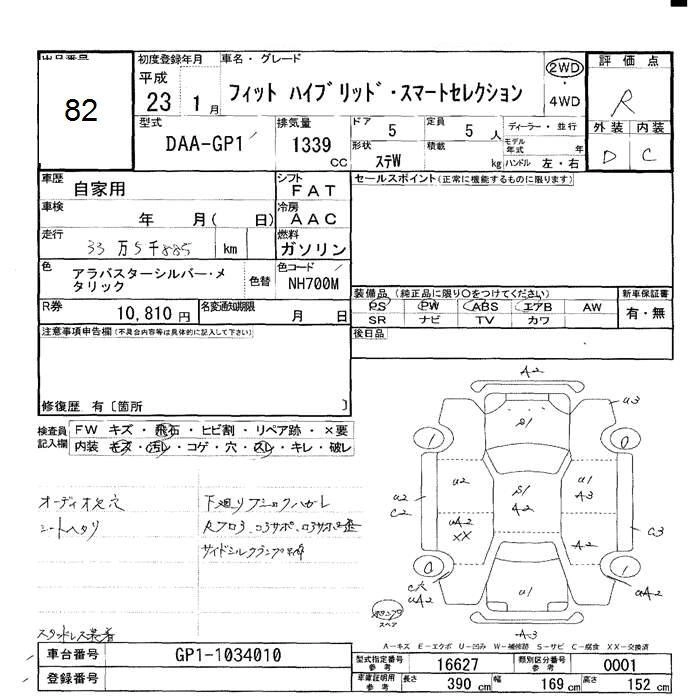 出品番号
82
初度登録年月 車名・グレード
平成 23 1月
フィット ハイブリッド・スマートセレクション
2WD・4WD
評価点
R
外装 内装
D C
型式 DAA-GP1
排気量 1339 CC
ドア 5
定員 5 人
ディーラー・並行
形状 ステW
積載 kg
モデル年式 年
ハンドル 左・右
車歴 自家用
シフト FAT
セールスポイント(正常に機能するものに限ります)
車検 年 月( 日)
冷房 AAC
走行 33万5千885 km
燃料 ガソリン
色 アラバスターシルバー・メタリック
色替
色コード NH700M
装備品(純正品に限り○をつけてください)
新車保証書
PS PW ABS エアB AW
SR ナビ TV カワ
有・無
R券 10,810円
名変通知期限 月 日
後日品
注意事項申告欄(不具合内容等は具体的に記入して下さい)
修復歴 有〔箇所 〕
検査員記入欄
FW キズ・飛石・ヒビ割・リペア跡・×要
内装 キズ・汚レ・コゲ・穴・スレ・キレ・破レ
オーディオ欠穴
シートヘタリ
下廻りフショクハガレ
サイドシルクランプ
スタッドレス装着
A2
u3
S1
1
0
u2
u1
A3
S1
A2
u2
C2
uA2
XX
C3
A2
0
1
C穴
uA2
u1
uA2
スペア
A3
A-キズ E-エクボ U-凹み W-補修跡 S-サビ C-腐食 XX-交換済
車台番号 GP1-1034010
登録番号
型式指定番号 参考 16627
類別区分番号 参考 0001
車庫証明用 参考 長さ 390 cm 幅 169 cm 高さ 152 cm